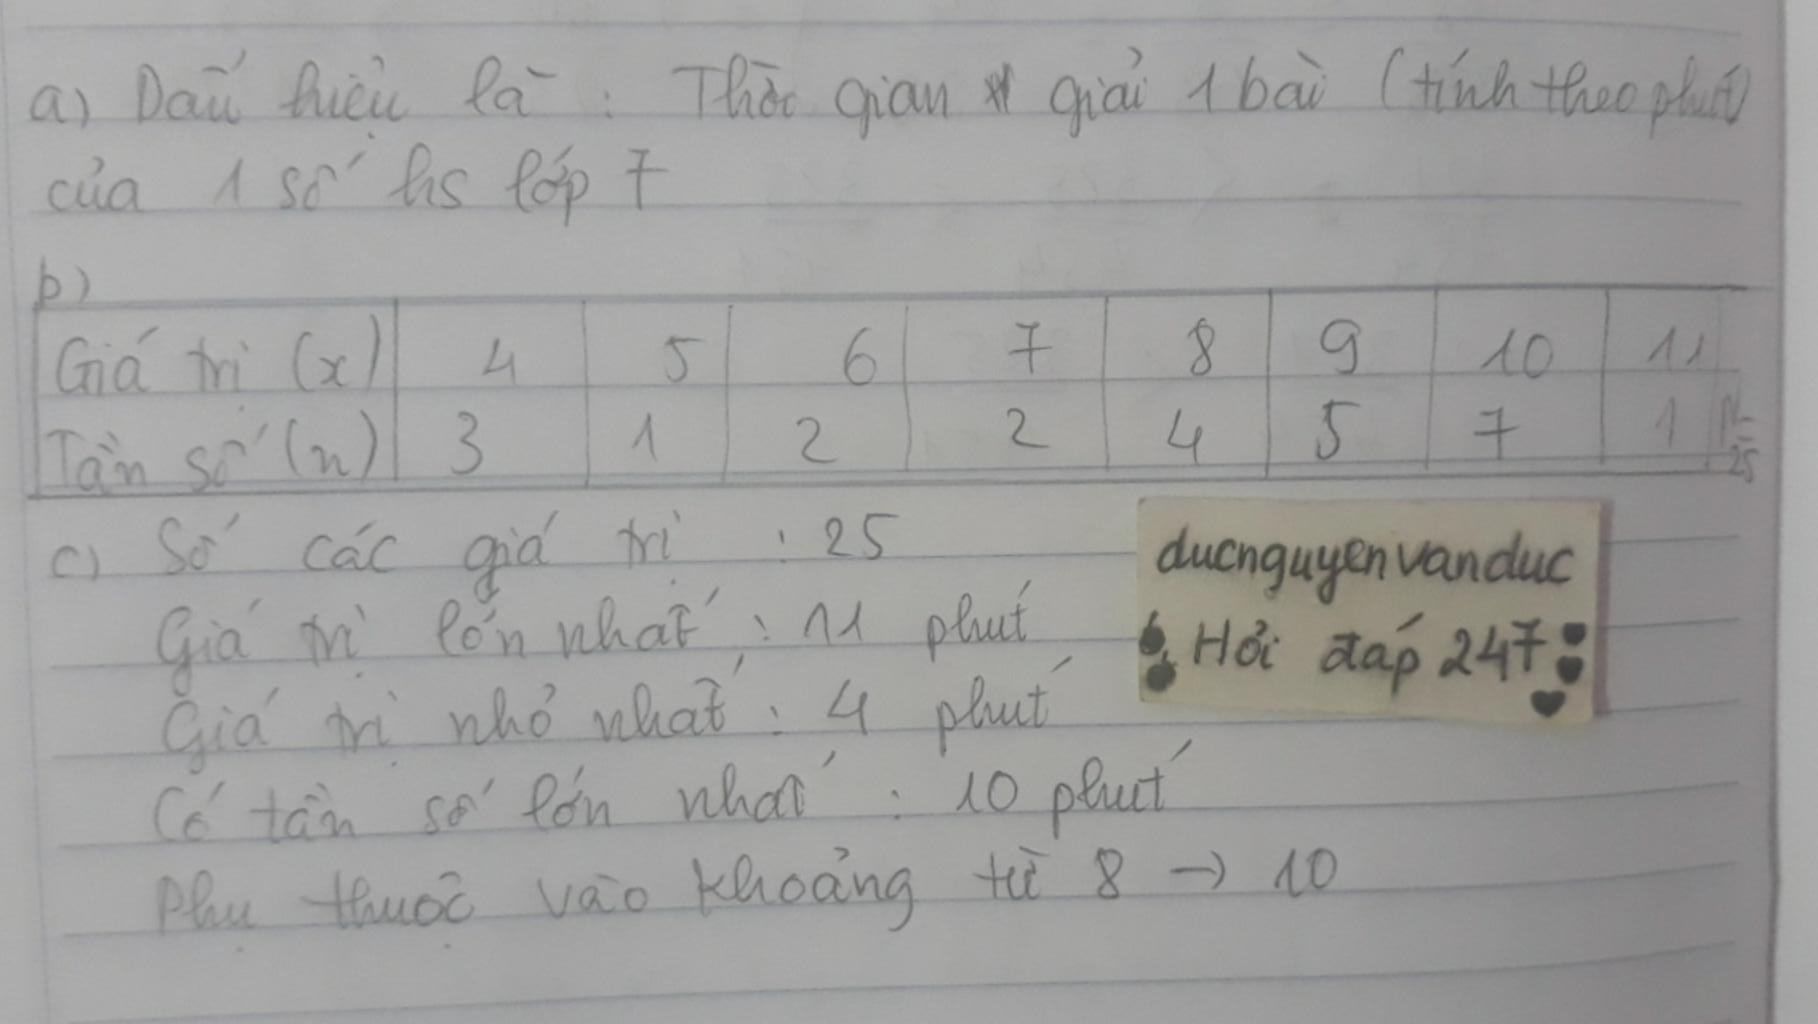 a) Dấu hiệu là : Thời gian giải 1 bài (tính theo phút)
của 1 số hs lớp 7
b)
Giá trị (x) 4 5 6 7 8 9 10 11
Tần số (n) 3 1 2 2 4 5 7 1 N=25
c) Số các giá trị : 25
Giá trị lớn nhất : 11 phút
Giá trị nhỏ nhất : 4 phút
Có tần số lớn nhất : 10 phút
Phụ thuộc vào khoảng từ 8 → 10
ducnguyenvanduc
Hỏi đáp 247